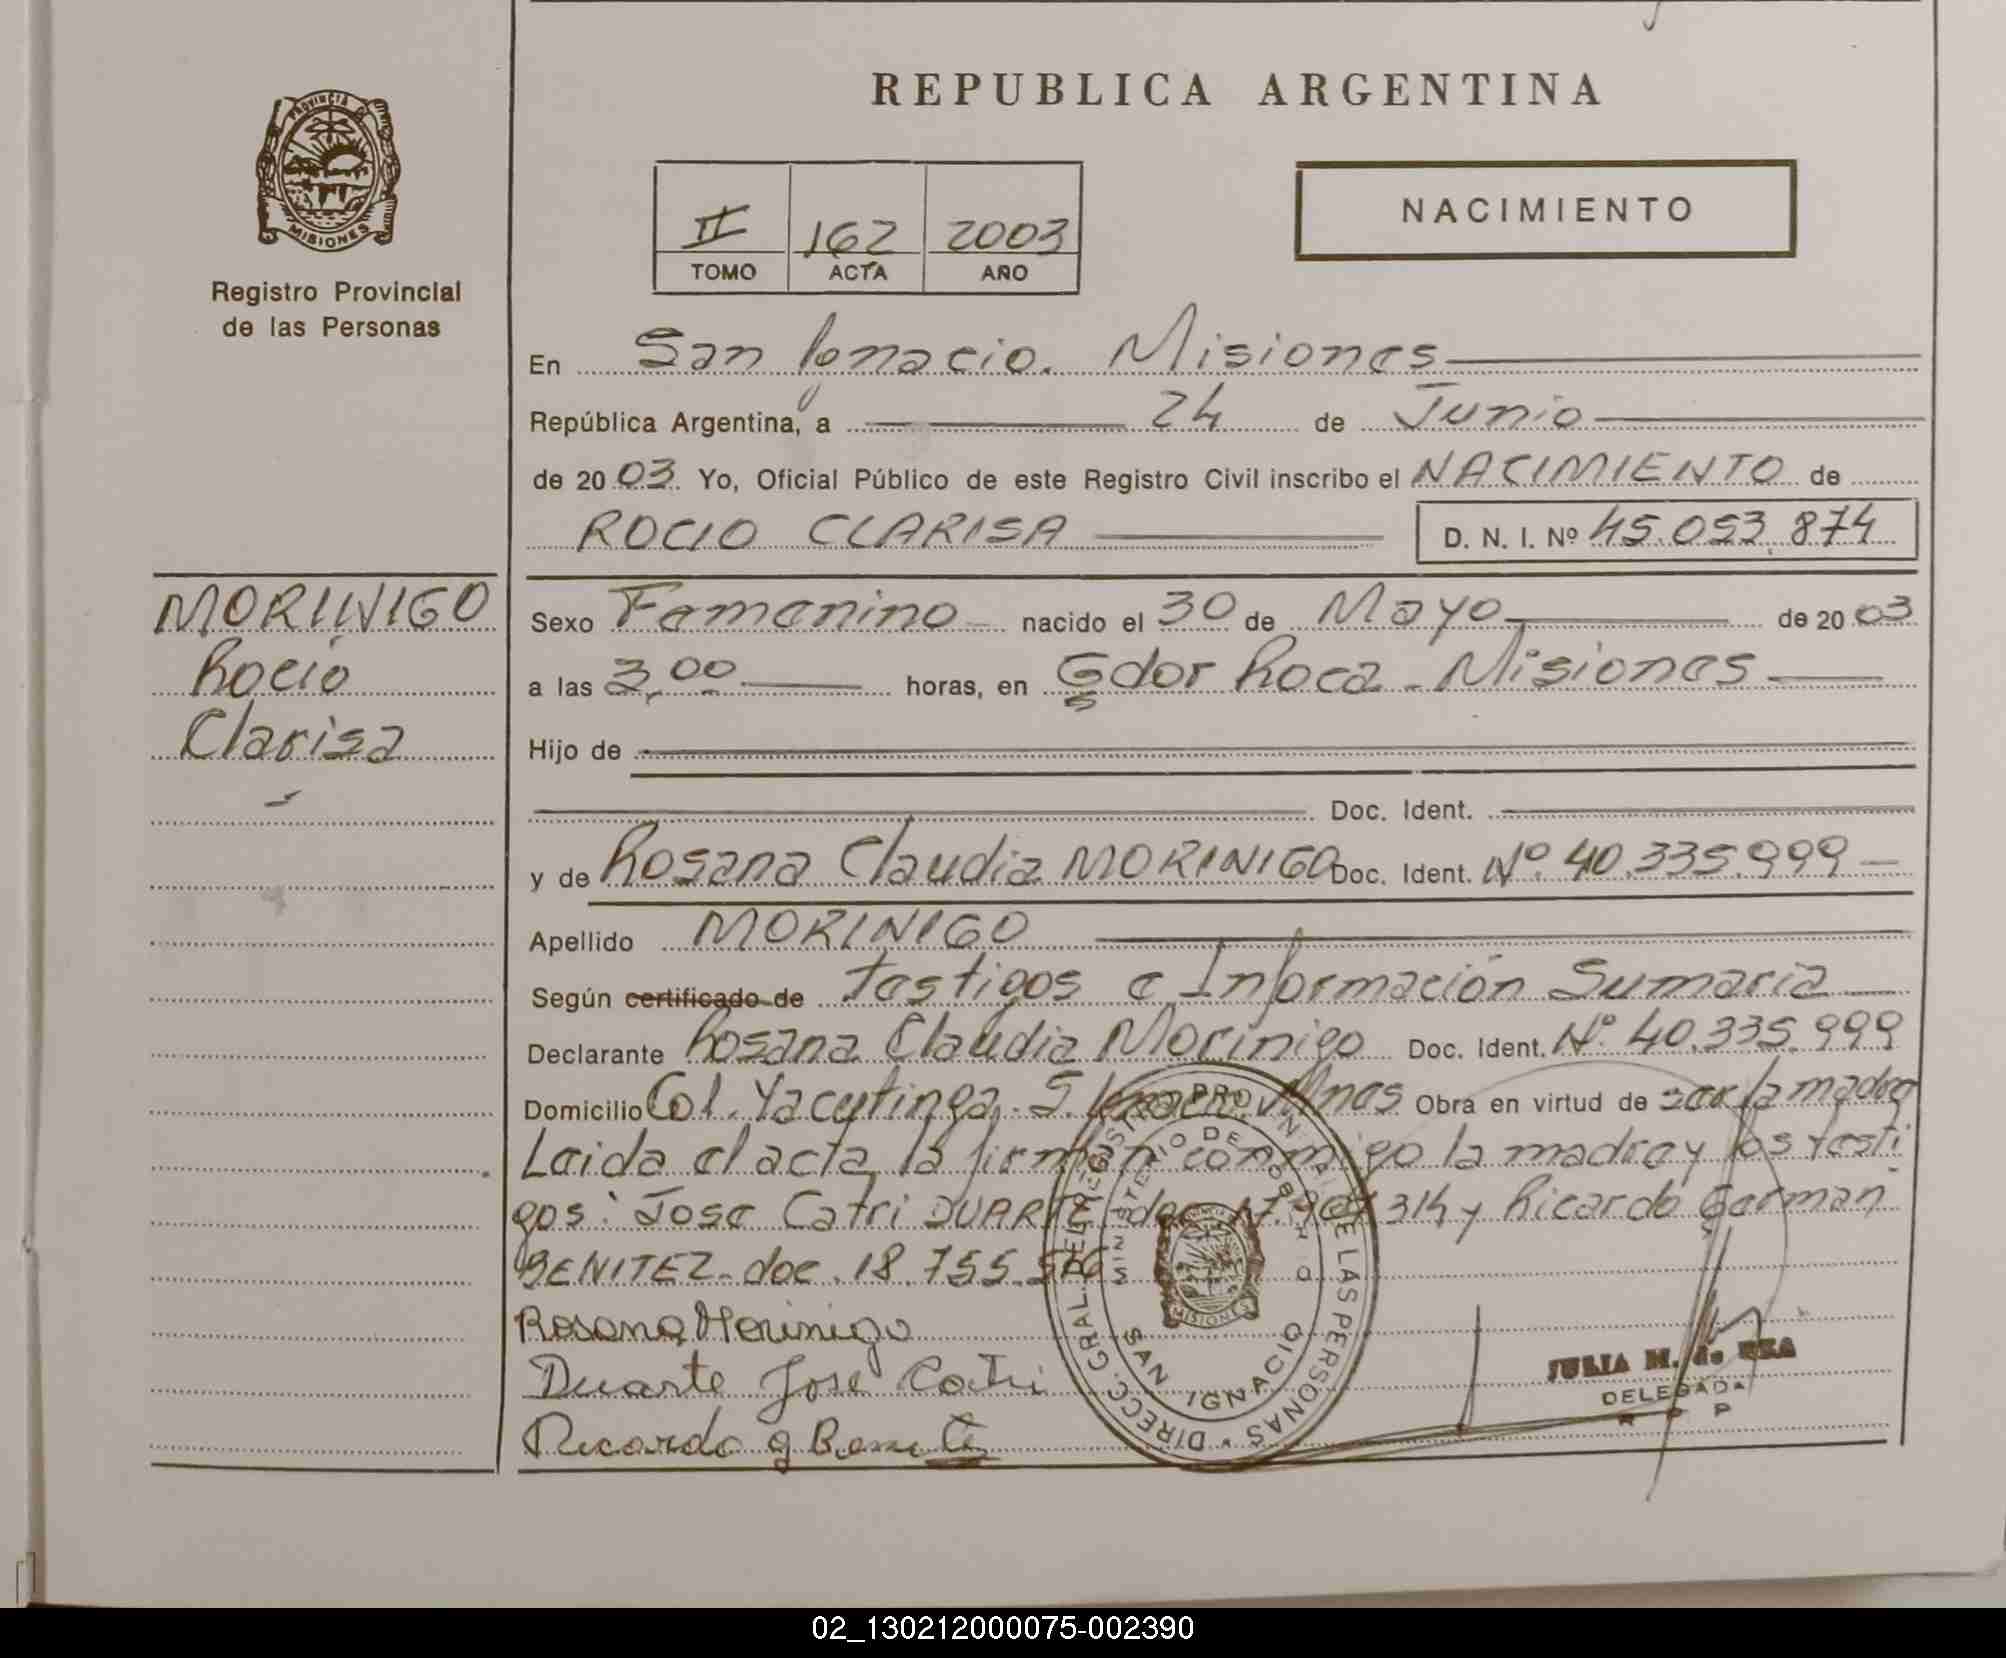 REPUBLICA ARGENTINA
PROVINCIA DE
MISIONES
Registro Provincial
de las Personas
II 162 2003
TOMO ACTA AÑO
NACIMIENTO
En San Ignacio. Misiones
República Argentina, a 24 de Junio
de 2003. Yo, Oficial Público de este Registro Civil inscribo el NACIMIENTO de
ROCIO CLARISA D. N. I. Nº 45.053.874
MORINIGO
Rocio
Clarisa
Sexo Femenino nacido el 30 de Mayo de 2003
a las 3,00 horas, en Gdor Roca - Misiones
Hijo de
Doc. Ident.
y de Rosana Claudia MORINIGO Doc. Ident. Nº. 40.335.999
Apellido MORINIGO
Según certificado de testigos e Información Sumaria
Declarante Rosana Claudia Morinigo Doc. Ident. Nº. 40.335.999
Domicilio Col. Yacutinga. S. Ignacio. Mnes Obra en virtud de ser la madre
Leida el acta, la firman conmigo la madre y los testi
gos: Jose Catri DUARTE doc. 17. 314 y Ricardo German
BENITEZ doc. 18.755.
Rosana Morinigo
Duarte José Catri
Ricardo g Benitez
DIRECC. GRAL. DEL REGISTRO PROVINCIAL DE LAS PERSONAS
MINISTERIO DE GOBIERNO
MISIONES
SAN IGNACIO
JULIA M. de
DELEGADA
R P P
02_130212000075-002390